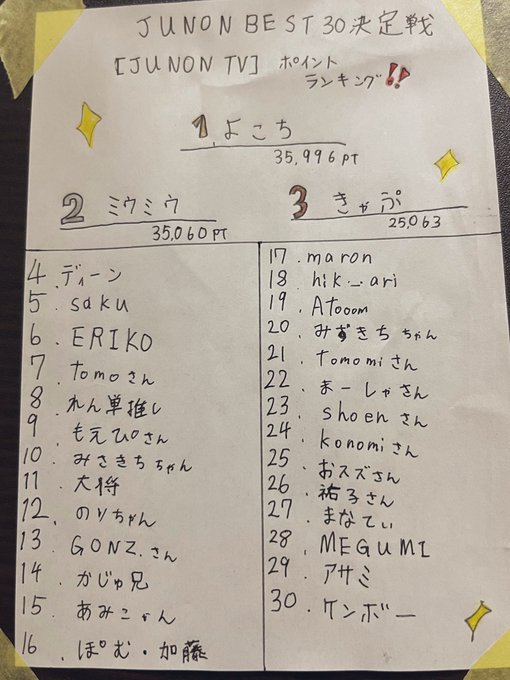 JUNON BEST 30 決定戦
[JUNON TV] ポイント
ランキング!!
1 よこち
35,996 PT
2 ミウミウ
35,060 PT
3 きゃぷ
25,063
4 ディーン
5. saku
6. ERIKO
7. tomoさん
8. れん単推し
9. もえぴさん
10. みさきちちゃん
11. 大将
12. のりちゃん
13. GONZ.さん
14. かじゅ兄
15. あみこゃん
16. ぽむ・加藤
17. maron
18. hik_ari
19. Atooom
20. みずきちちゃん
21. tomomiさん
22. まーしゃさん
23. shoenさん
24. konomiさん
25. おスズさん
26. 祐子さん
27. まなてぃ
28. MEGUMI
29. アサミ
30. ケンボー